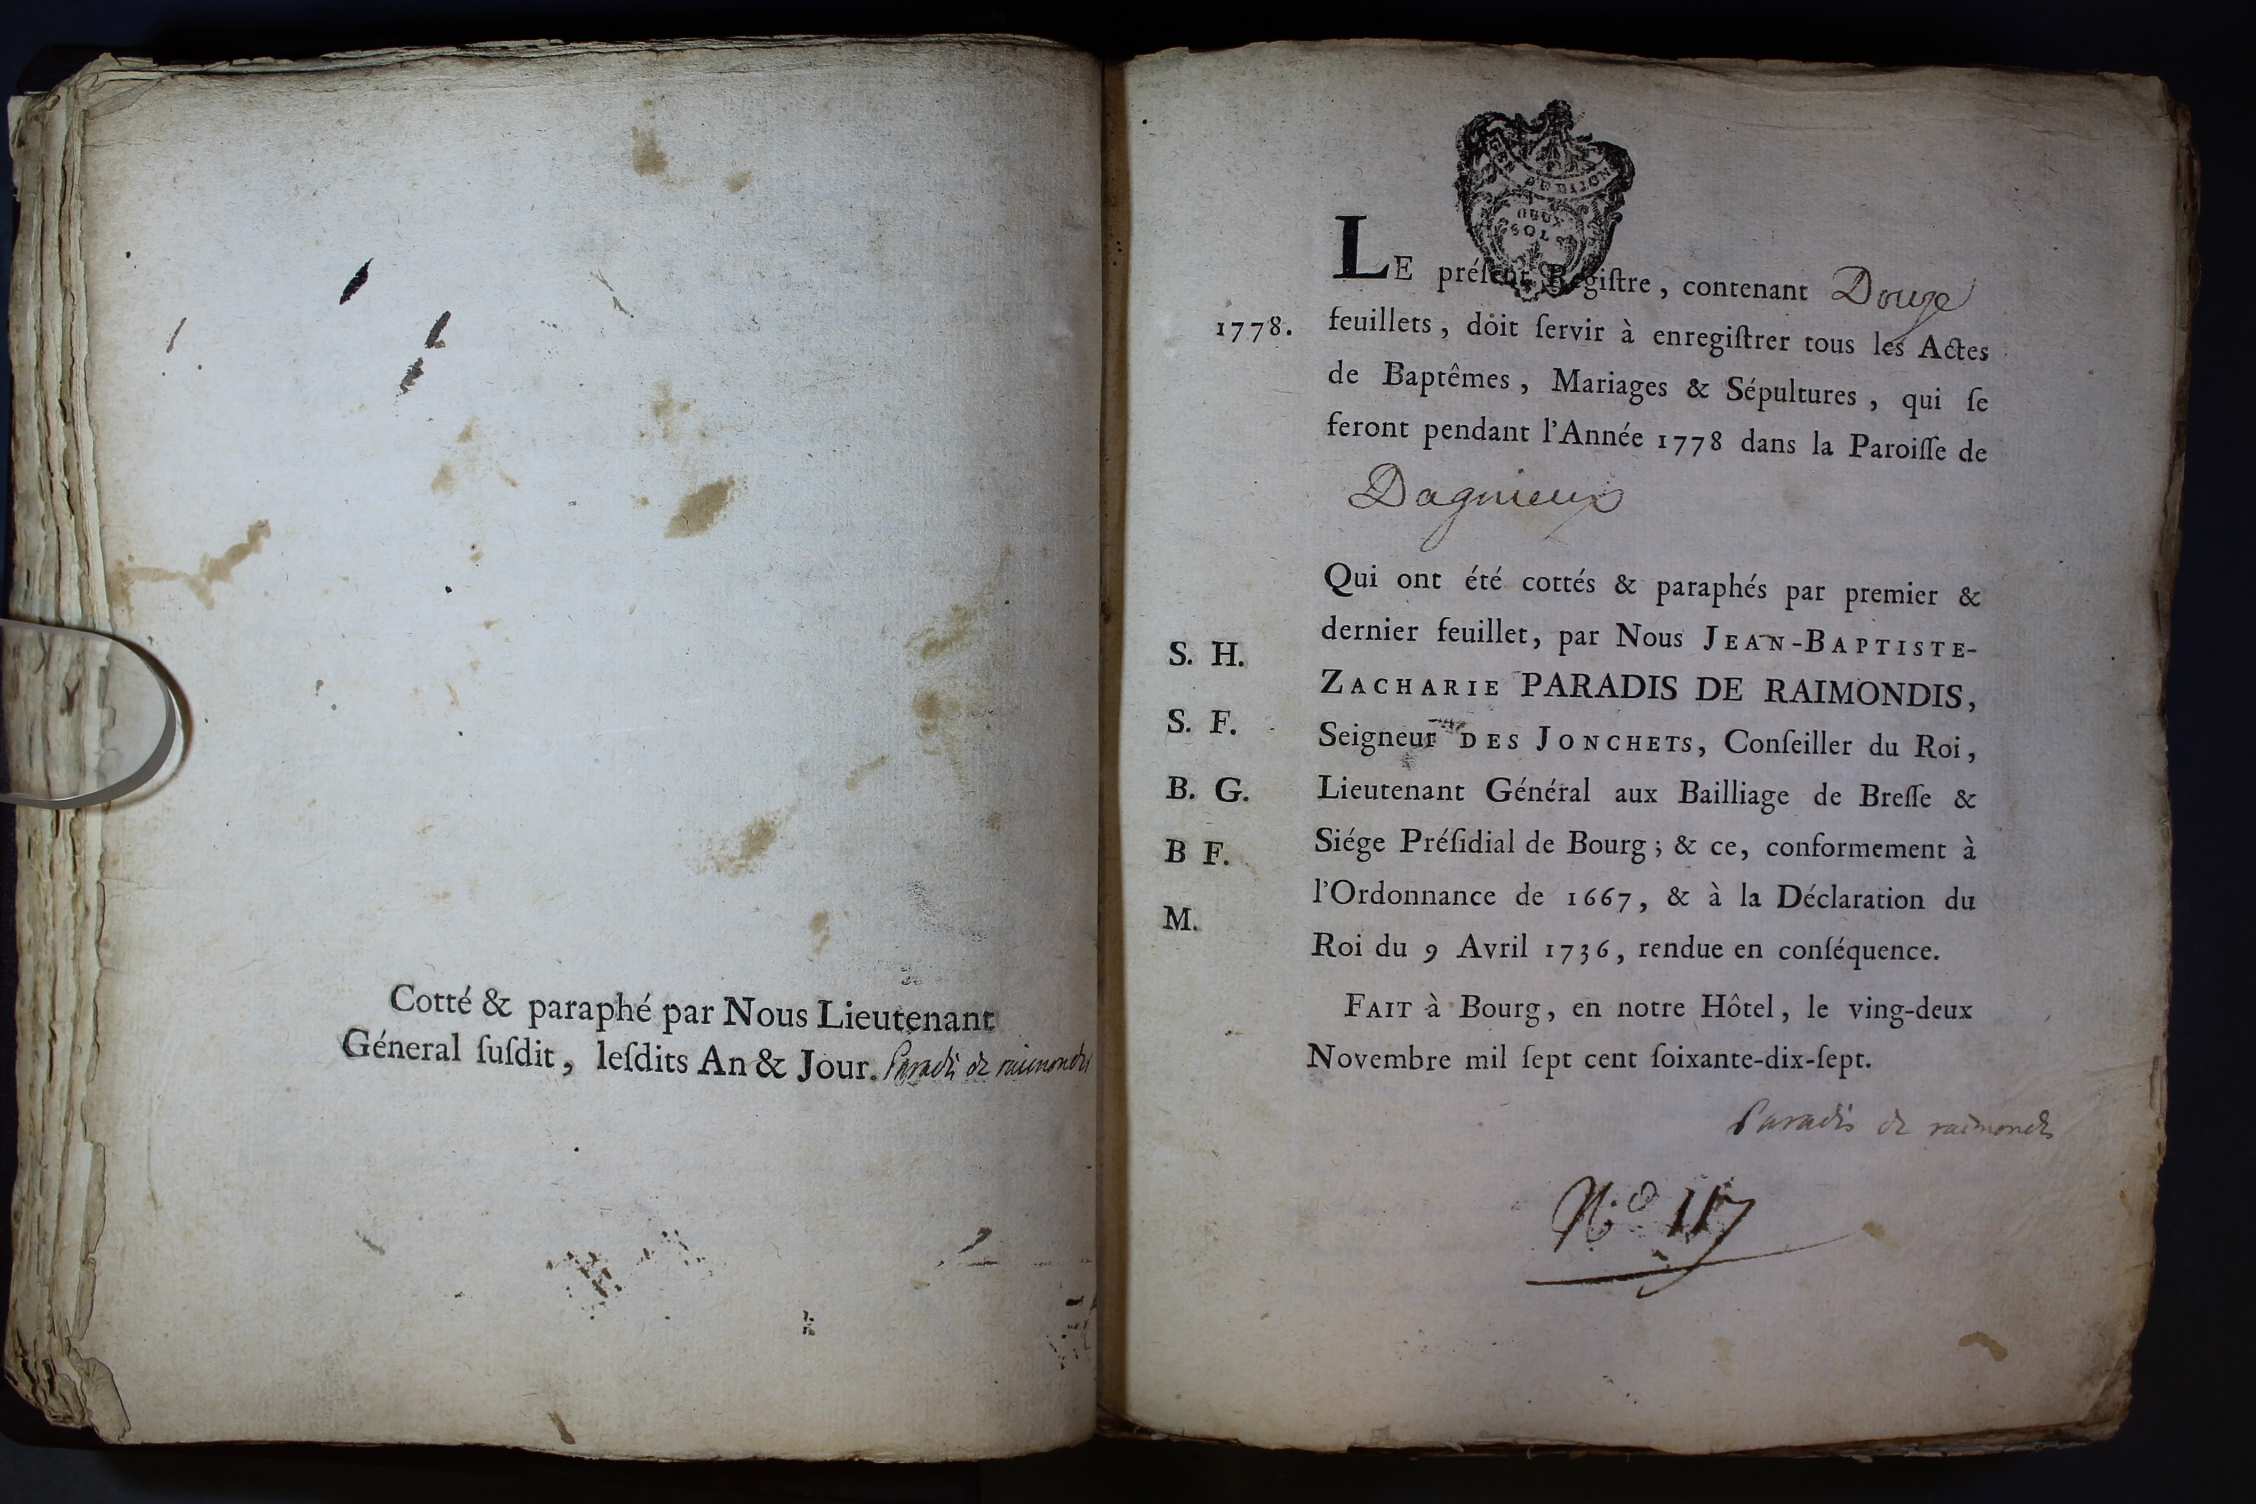 Cotté & paraphé par Nous Lieutenant
Géneral ſuſdit, leſdits An & Jour. Paradis de raimondis
GEN DE DIJON
DEUX
SOLS
LE préſent Regiſtre, contenant Douze
1778.
feuillets, doit ſervir à enregiſtrer tous les Actes
de Baptêmes, Mariages & Sépultures, qui ſe
feront pendant l'Année 1778 dans la Paroiſſe de
Dagnieux
Qui ont été cottés & paraphés par premier &
dernier feuillet, par Nous JEAN-BAPTISTE-
ZACHARIE PARADIS DE RAIMONDIS,
Seigneur DES JONCHETS, Conſeiller du Roi,
Lieutenant Général aux Bailliage de Breſſe &
Siége Préſidial de Bourg; & ce, conformement à
l'Ordonnance de 1667, & à la Déclaration du
Roi du 9 Avril 1736, rendue en conſéquence.
S. H.
S. F.
B. G.
B F.
M.
FAIT à Bourg, en notre Hôtel, le ving-deux
Novembre mil ſept cent ſoixante-dix-ſept.
Paradis de raimondis
N.o 117